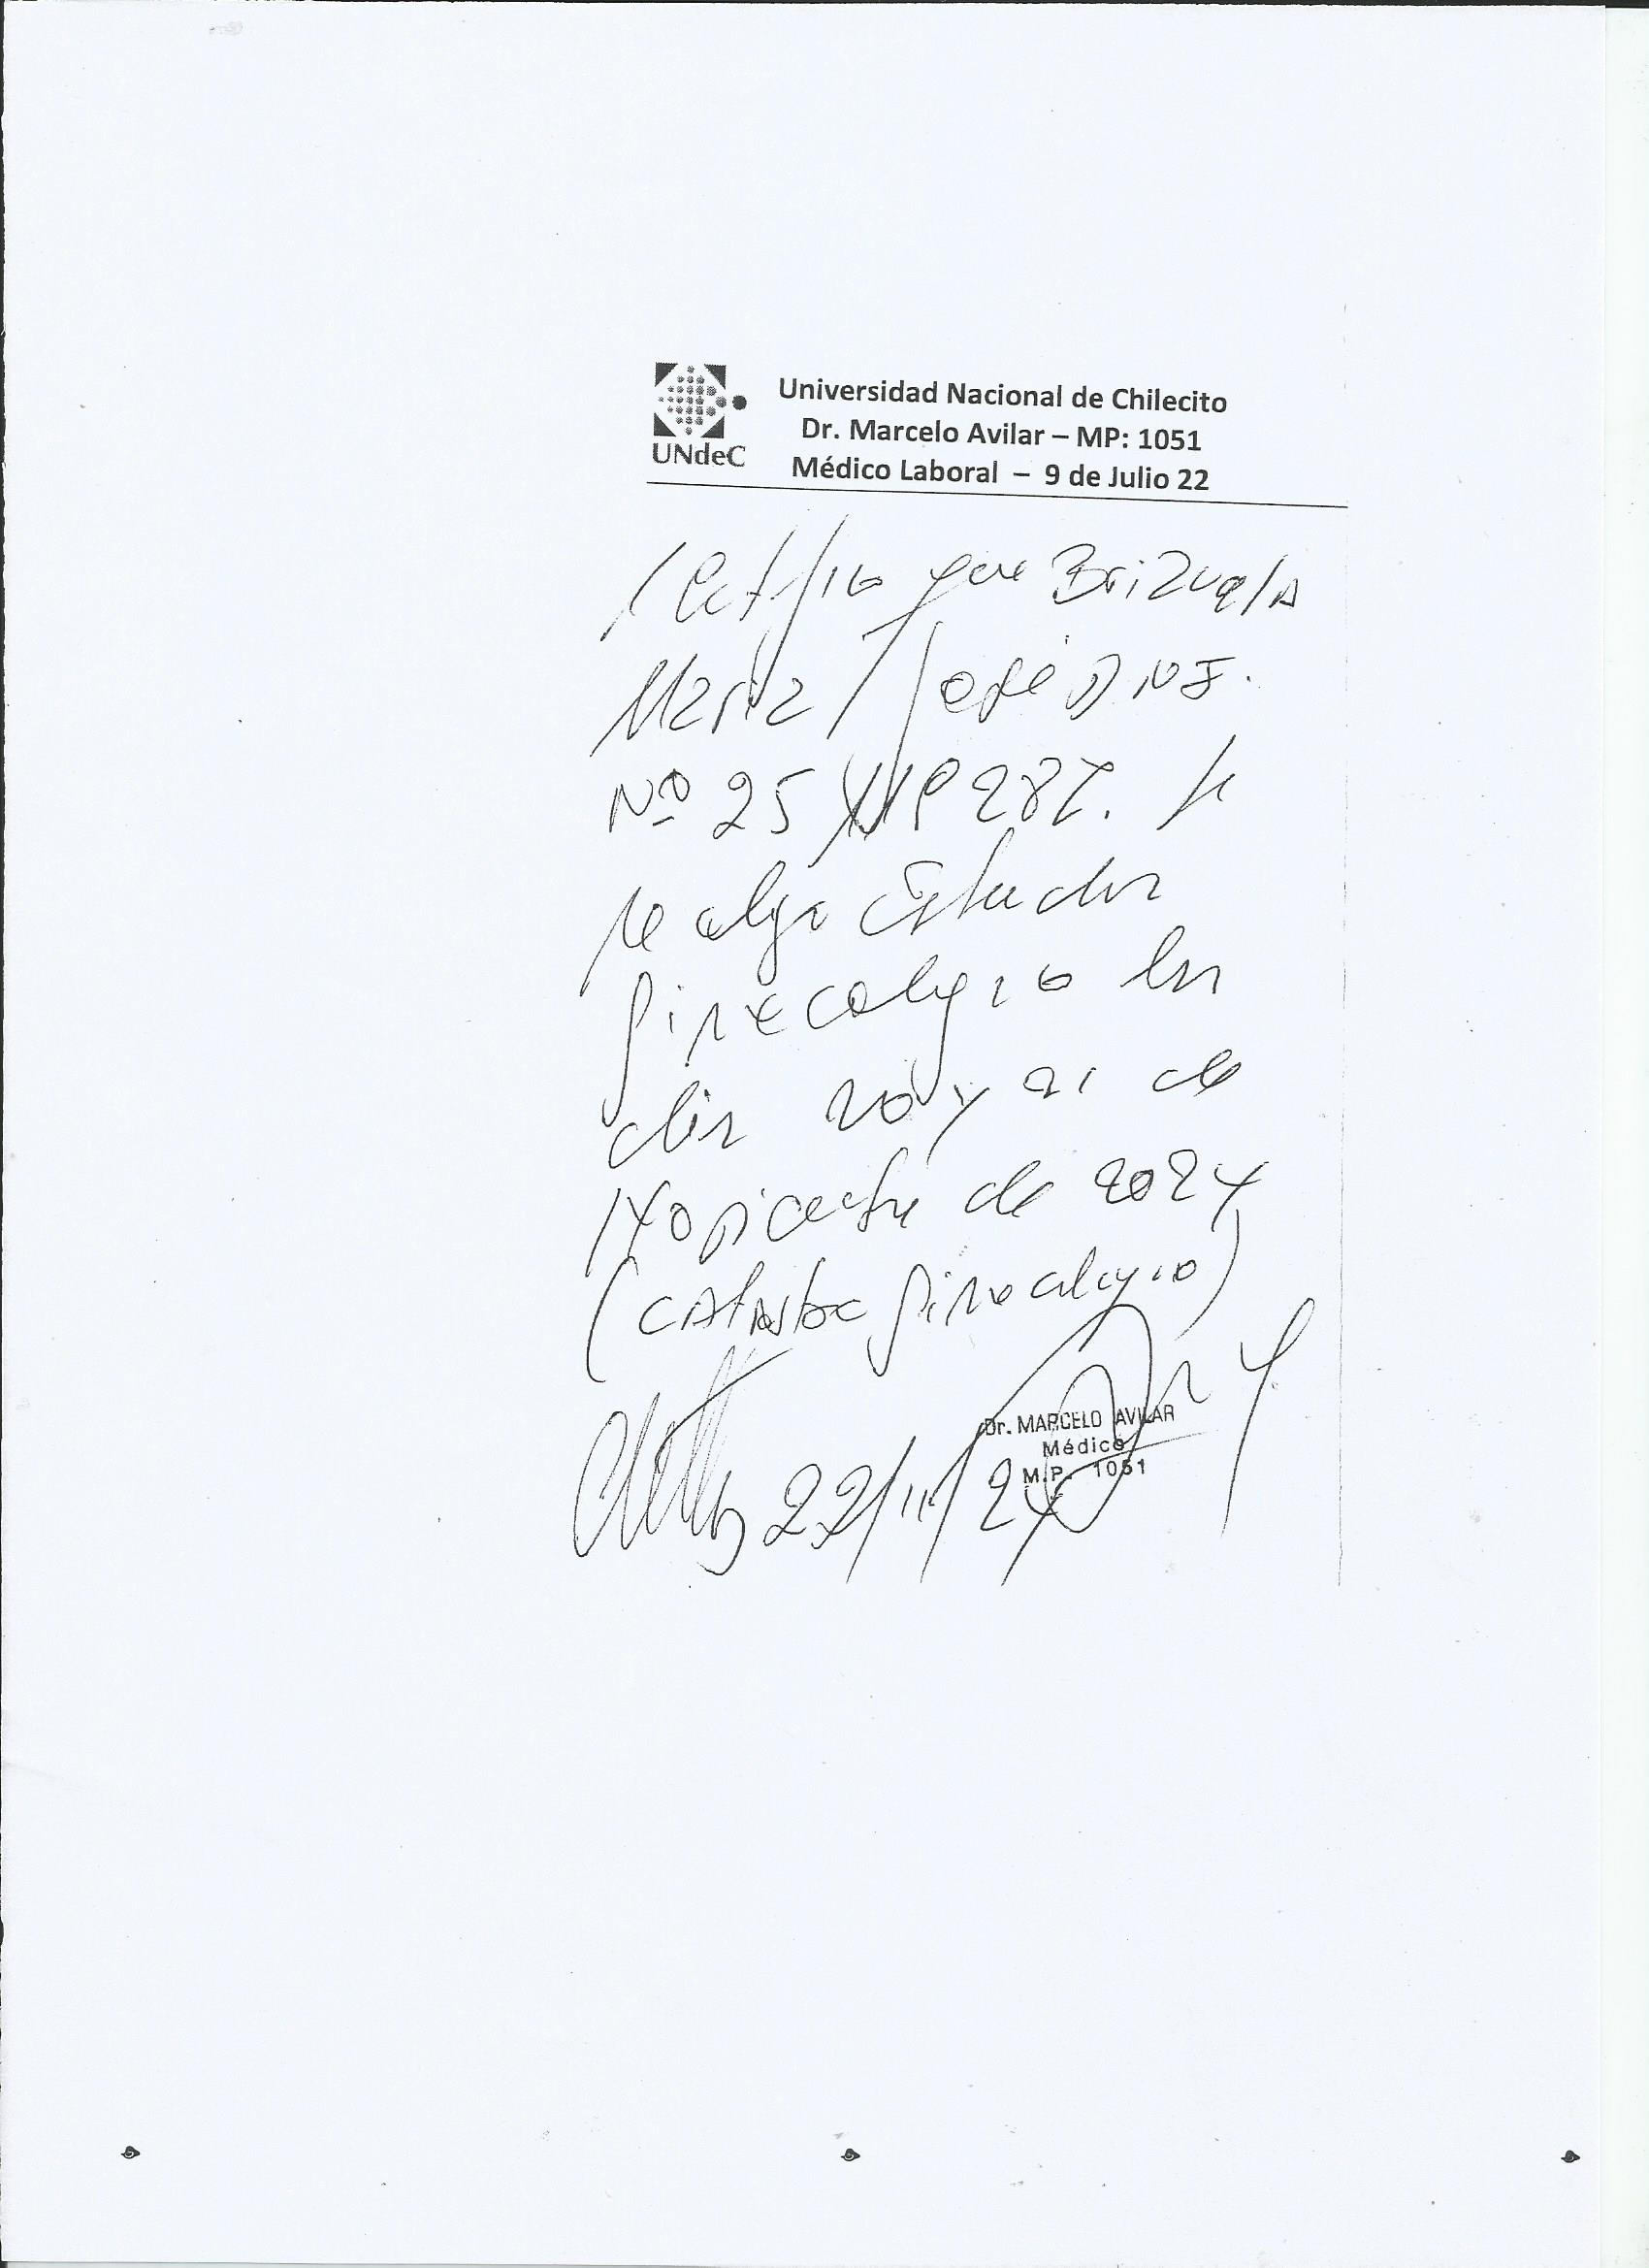 UNdeC
Universidad Nacional de Chilecito
Dr. Marcelo Avilar – MP: 1051
Médico Laboral – 9 de Julio 22
Certifico que Brizuela
María José DNI.
Nº 25
realizo Estudios
ginecologico los
dias 20 y 21 de
Noviembre de 2024
(catastro ginecologico)
Dr. MARCELO AVILAR
Médico
M.P. 1051
22/11/24